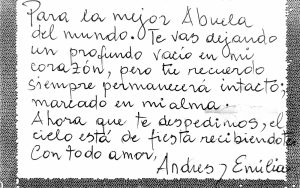 Para la mejor Abuela
del mundo. Te vas dejando
un profundo vacío en mi
corazón, pero tu recuerdo
siempre permanecerá intacto;
marcado en mi alma.
Ahora que te despedimos, el
cielo está de fiesta recibiendote
Con todo amor,
Andres y Emilia